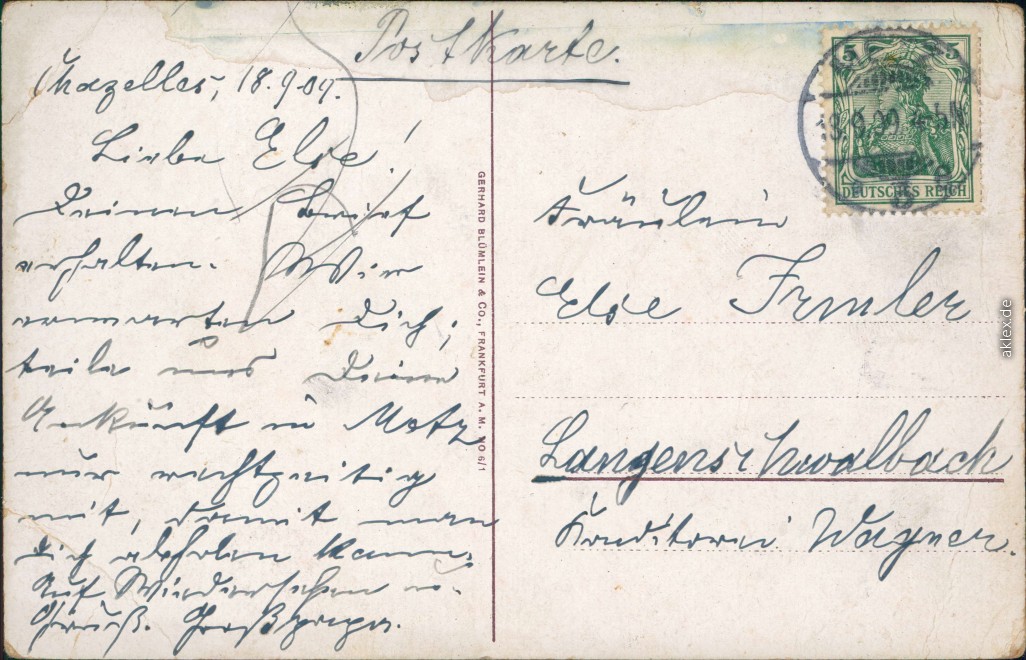 Postkarte.
Chazelles, 18.9.09.
Liebe Else!
Deinen Brief
erhalten. Wir
erwarten Dich;
teile uns Deine
Ankunft in Metz
nur rechtzeitig
mit, damit man
Dich abholen kann.
Auf Wiedersehen u.
Gruß. Großpapa.
GERHARD BLÜMLEIN & CO., FRANKFURT A. M. NO 6/1
5 5
DEUTSCHES REICH
18.9.09. 4-5N
Fräulein
Else Irmler
Langenschwalbach
Konditorei Wagner.
aklex.de